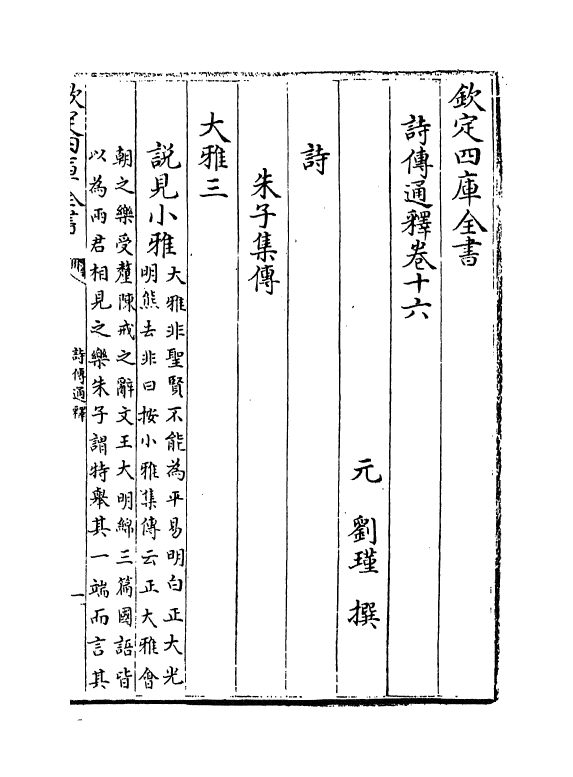 欽定四庫全書
詩傳通釋卷十六
元 劉瑾 撰
詩
朱子集傳
大雅三
說見小雅
大雅非聖賢不能為平易明白正大光
明熊去非曰按小雅集傳云正大雅會
朝之樂受釐陳戒之辭文王大明緜三篇國語皆
以為兩君相見之樂朱子謂特舉其一端而言其
欽定四庫全書
詩傳通釋
一